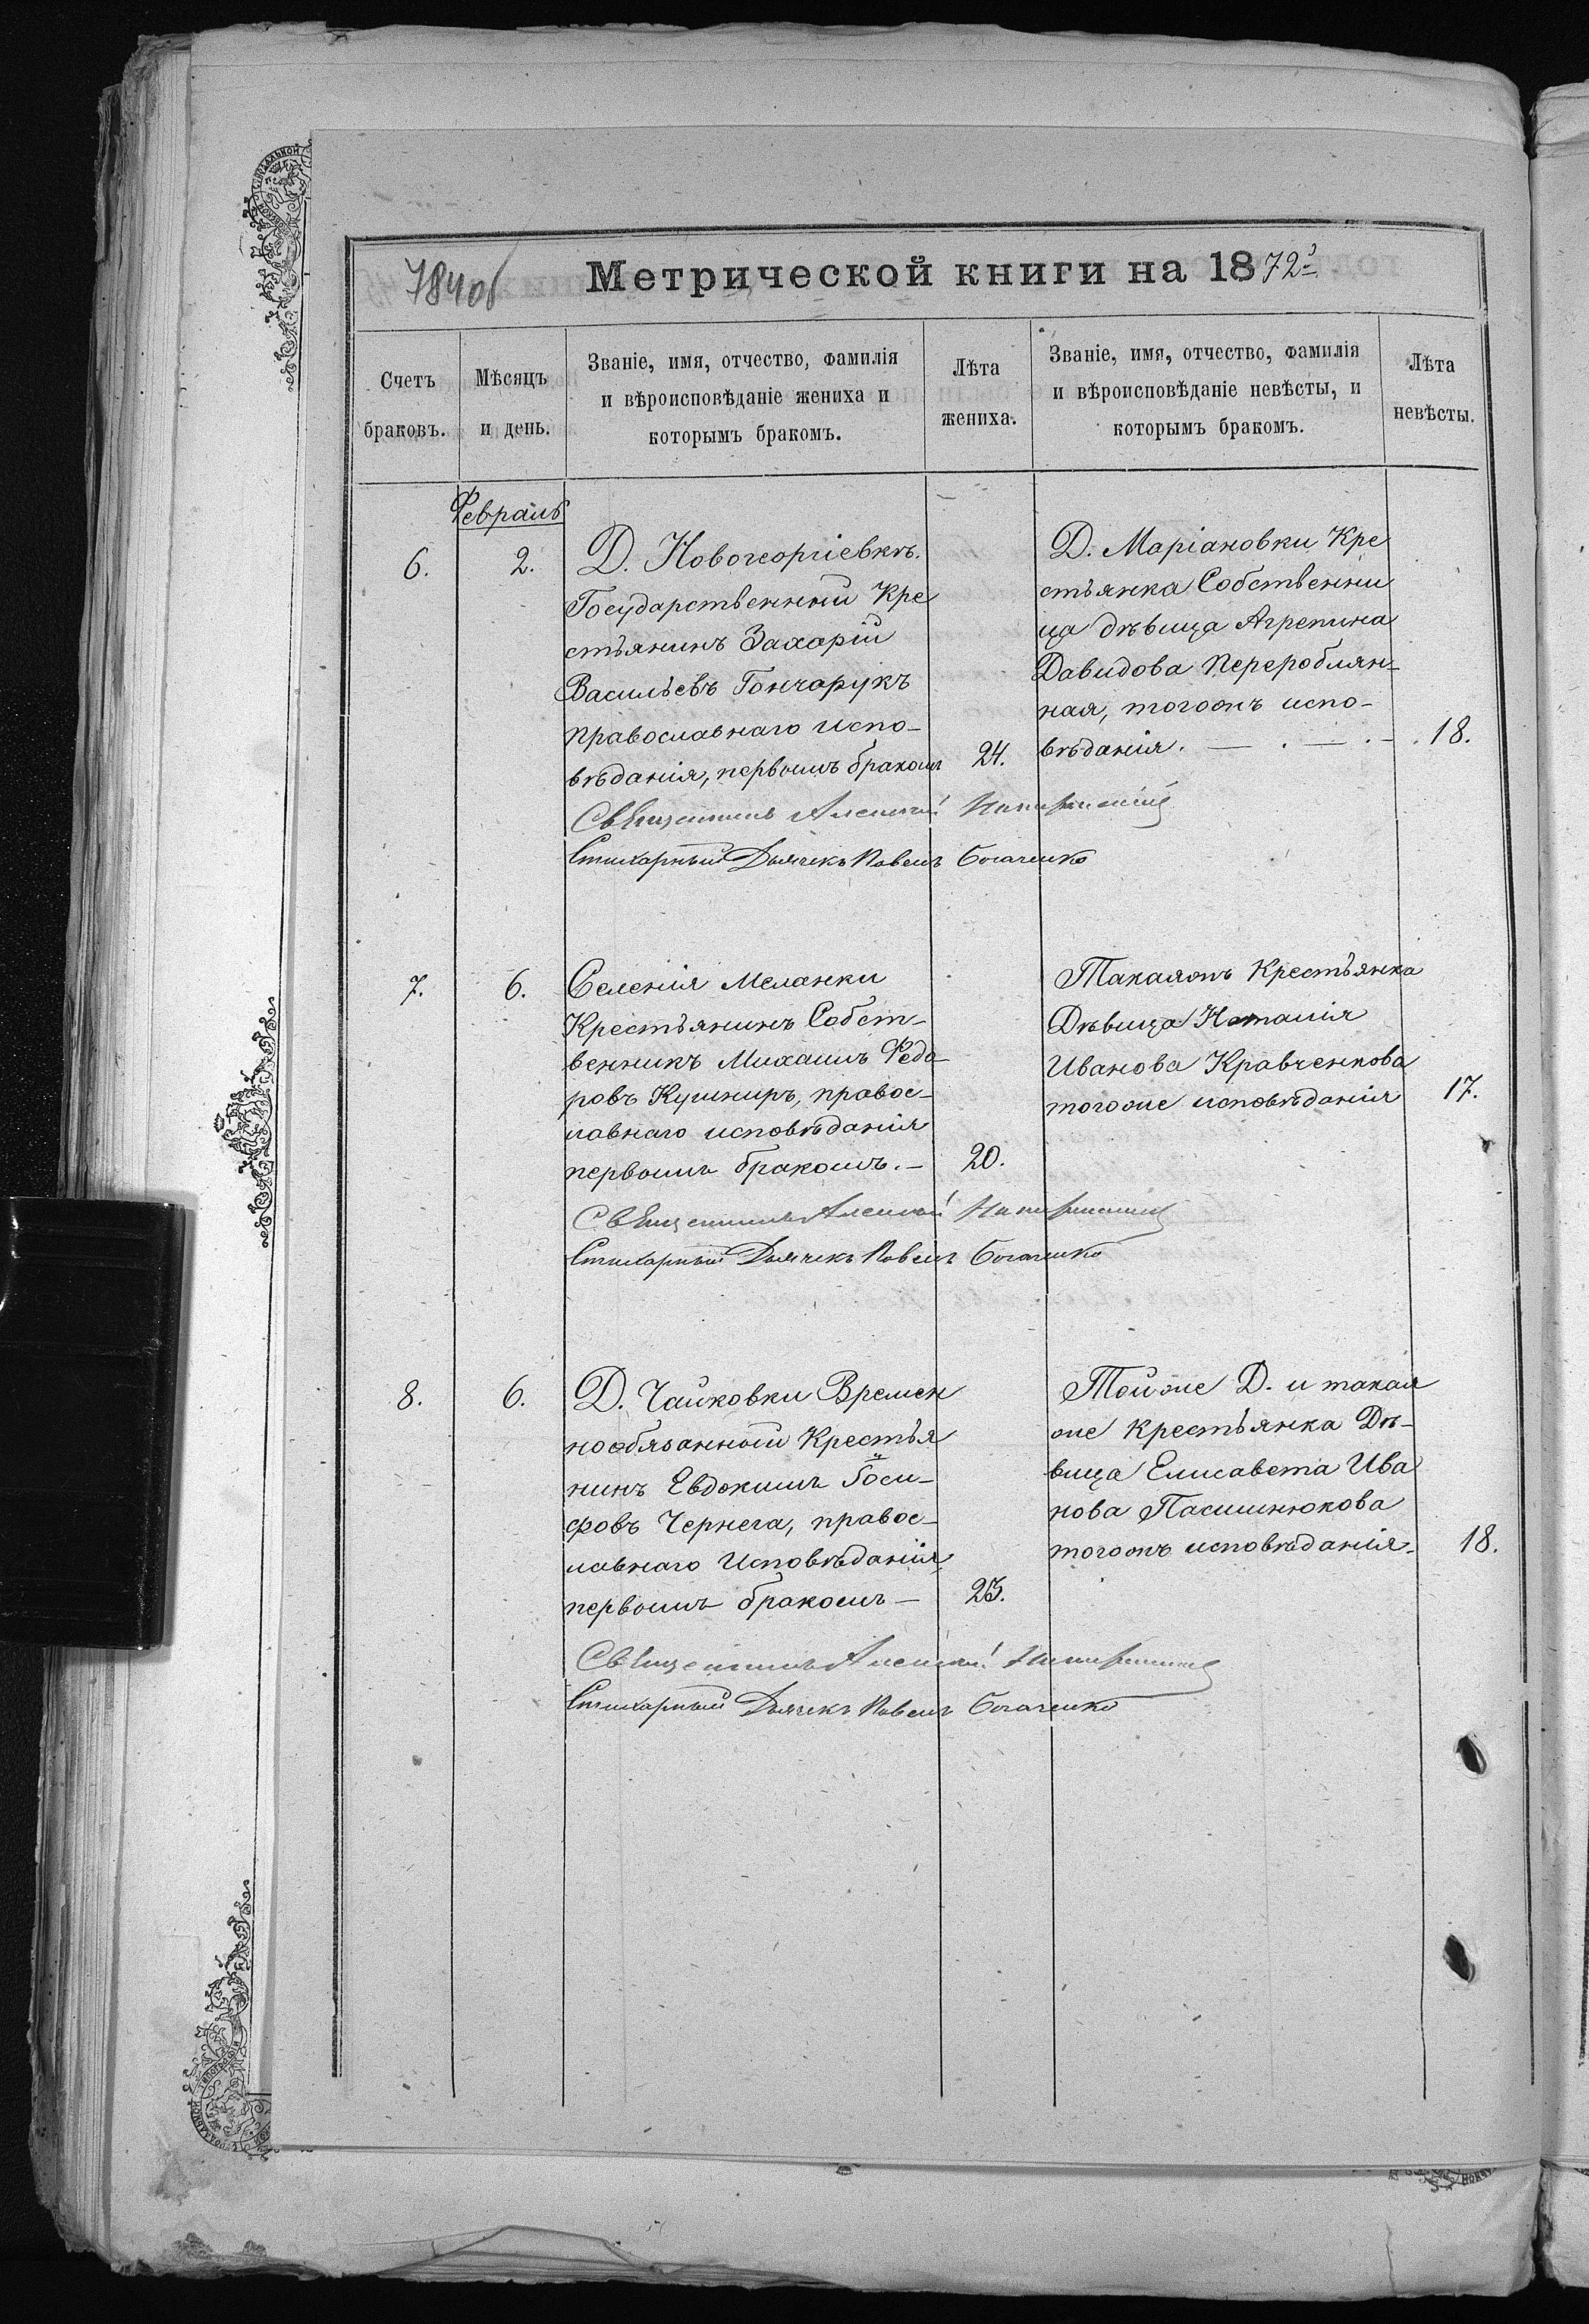 784об
Метрической книги на 1872й
Счетъ браковъ.
Мѣсяцъ и день.
Званіе, имя, отчество, фамилія
и вѣроисповѣданіе жениха и
которымъ бракомъ.
Лѣта жениха.
Званіе, имя, отчество, фамилія
и вѣроисповѣданіе невѣсты, и
которымъ бракомъ.
Лѣта невѣсты.
Февраль
6.
2.
Д. Новогеоргіевкѣ.
Государственный Кре
стьянинъ Захарій
Васильевъ Гончарукъ
православнаго испо-
вѣданія, первымъ бракомъ
24.
Д. Маріановки Кре
стьянка Собственни
ца дѣвица Агрепина
Давидова Перероблян-
ная, тогожъ испо-
вѣданія.
18.
Священникъ Алексѣй
Стихарный Дьячекъ Павелъ Богаченко
7.
6.
Селенія Меланки
Крестьянинъ Собст-
венникъ Михаилъ Федо
ровъ Кушниръ, правос-
лавнаго исповѣданія
первымъ бракомъ.
20.
Такаяжъ Крестьянка
Дѣвица Наталія
Иванова Кравченкова
тогоже исповѣданія
17.
Священникъ Алексѣй
Стихарный Дьячекъ Павелъ Богаченко
8.
6.
Д. Чайковки Времен
нообязанный Крестья
нинъ Евдокимъ Іоси-
фовъ Чернега, правос-
лавнаго Исповѣданія,
первымъ бракомъ
23.
Тойже Д. и такая
же крестьянка Дѣ-
вица Елисавета Ива
нова Пасишнюкова
тогожъ исповѣданія.
18.
Священникъ Алексѣй
Стихарный Дьячекъ Павелъ Богаченко